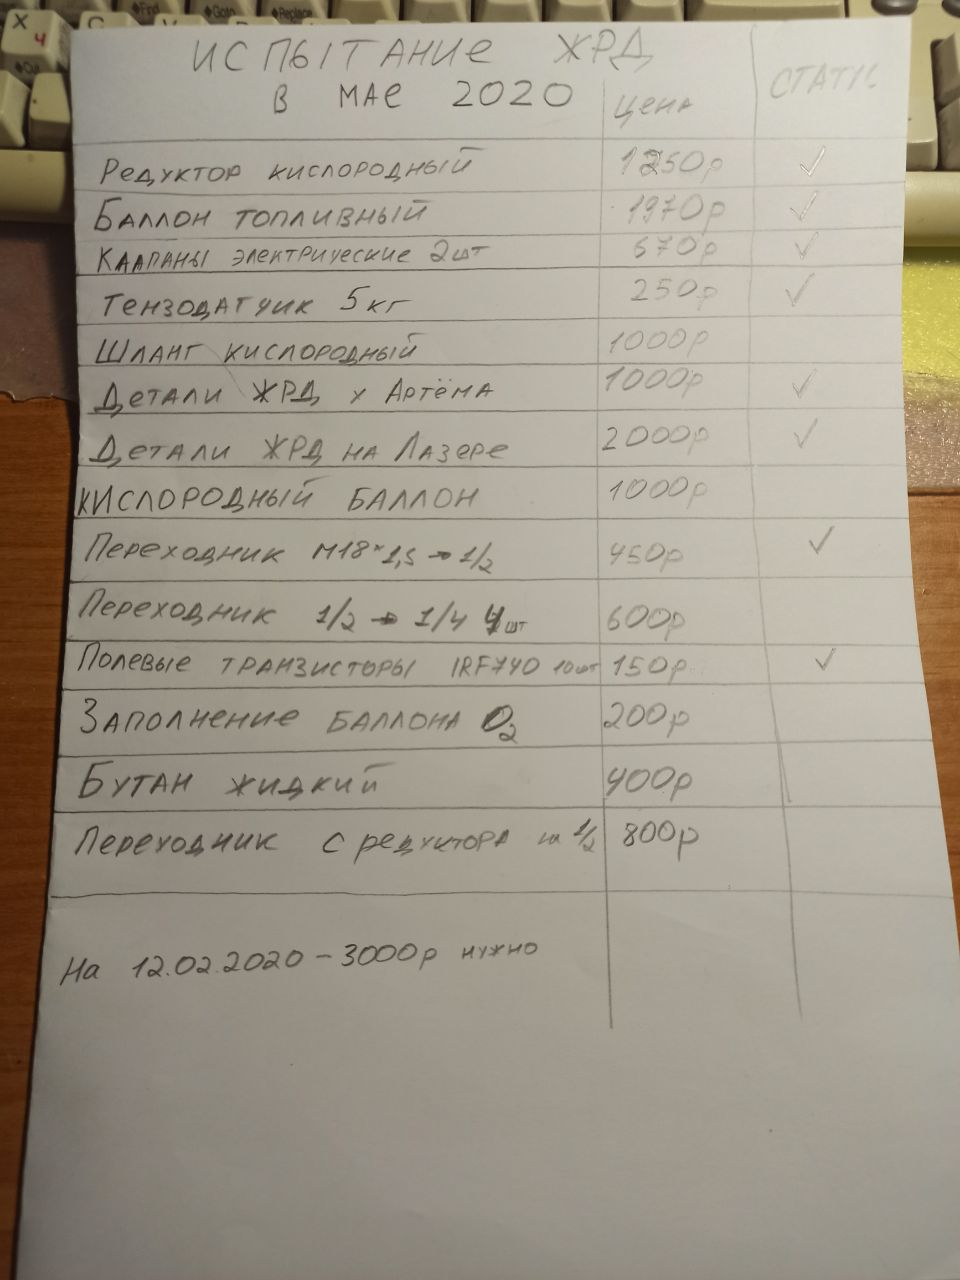 X
Ч
Cut
Find
Goto
Replace
ИСПЫТАНИЕ ЖРД
В МАЕ 2020
ЦЕНА
СТАТУС
РЕДУКТОР КИСЛОРОДНЫЙ 1250р ✓
БАЛЛОН ТОПЛИВНЫЙ 1970р ✓
КЛАПАНЫ ЭЛЕКТРИЧЕСКИЕ 2шт 670р ✓
ТЕНЗОДАТЧИК 5кг 250р ✓
ШЛАНГ КИСЛОРОДНЫЙ 1000р
ДЕТАЛИ ЖРД У АРТЁМА 1000р ✓
ДЕТАЛИ ЖРД НА ЛАЗЕРЕ 2000р ✓
КИСЛОРОДНЫЙ БАЛЛОН 1000р
ПЕРЕХОДНИК М18×1,5 → 1/2 450р ✓
ПЕРЕХОДНИК 1/2 → 1/4 4шт 600р
ПОЛЕВЫЕ ТРАНЗИСТОРЫ IRF740 10шт 150р ✓
ЗАПОЛНЕНИЕ БАЛЛОНА O₂ 200р
БУТАН ЖИДКИЙ 400р
ПЕРЕХОДНИК С РЕДУКТОРА на 1/2 800р
НА 12.02.2020 – 3000р НУЖНО